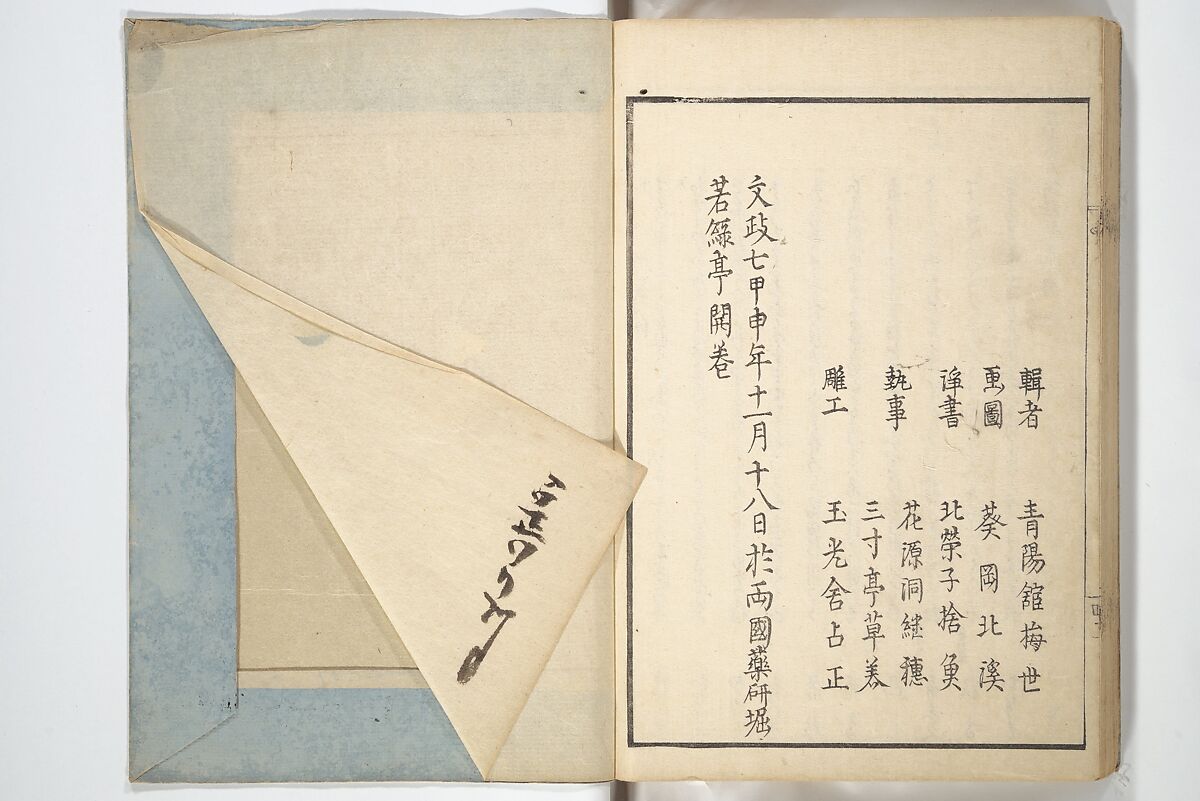 輯者 青陽舘梅世
画圖 葵岡北溪
淨書 北榮子捨魚
執事 花源洞継穗
三寸亭草美
雕工 玉光舍占正
文政七甲申年十一月十八日於両國藥研堀
若緑亭開巻